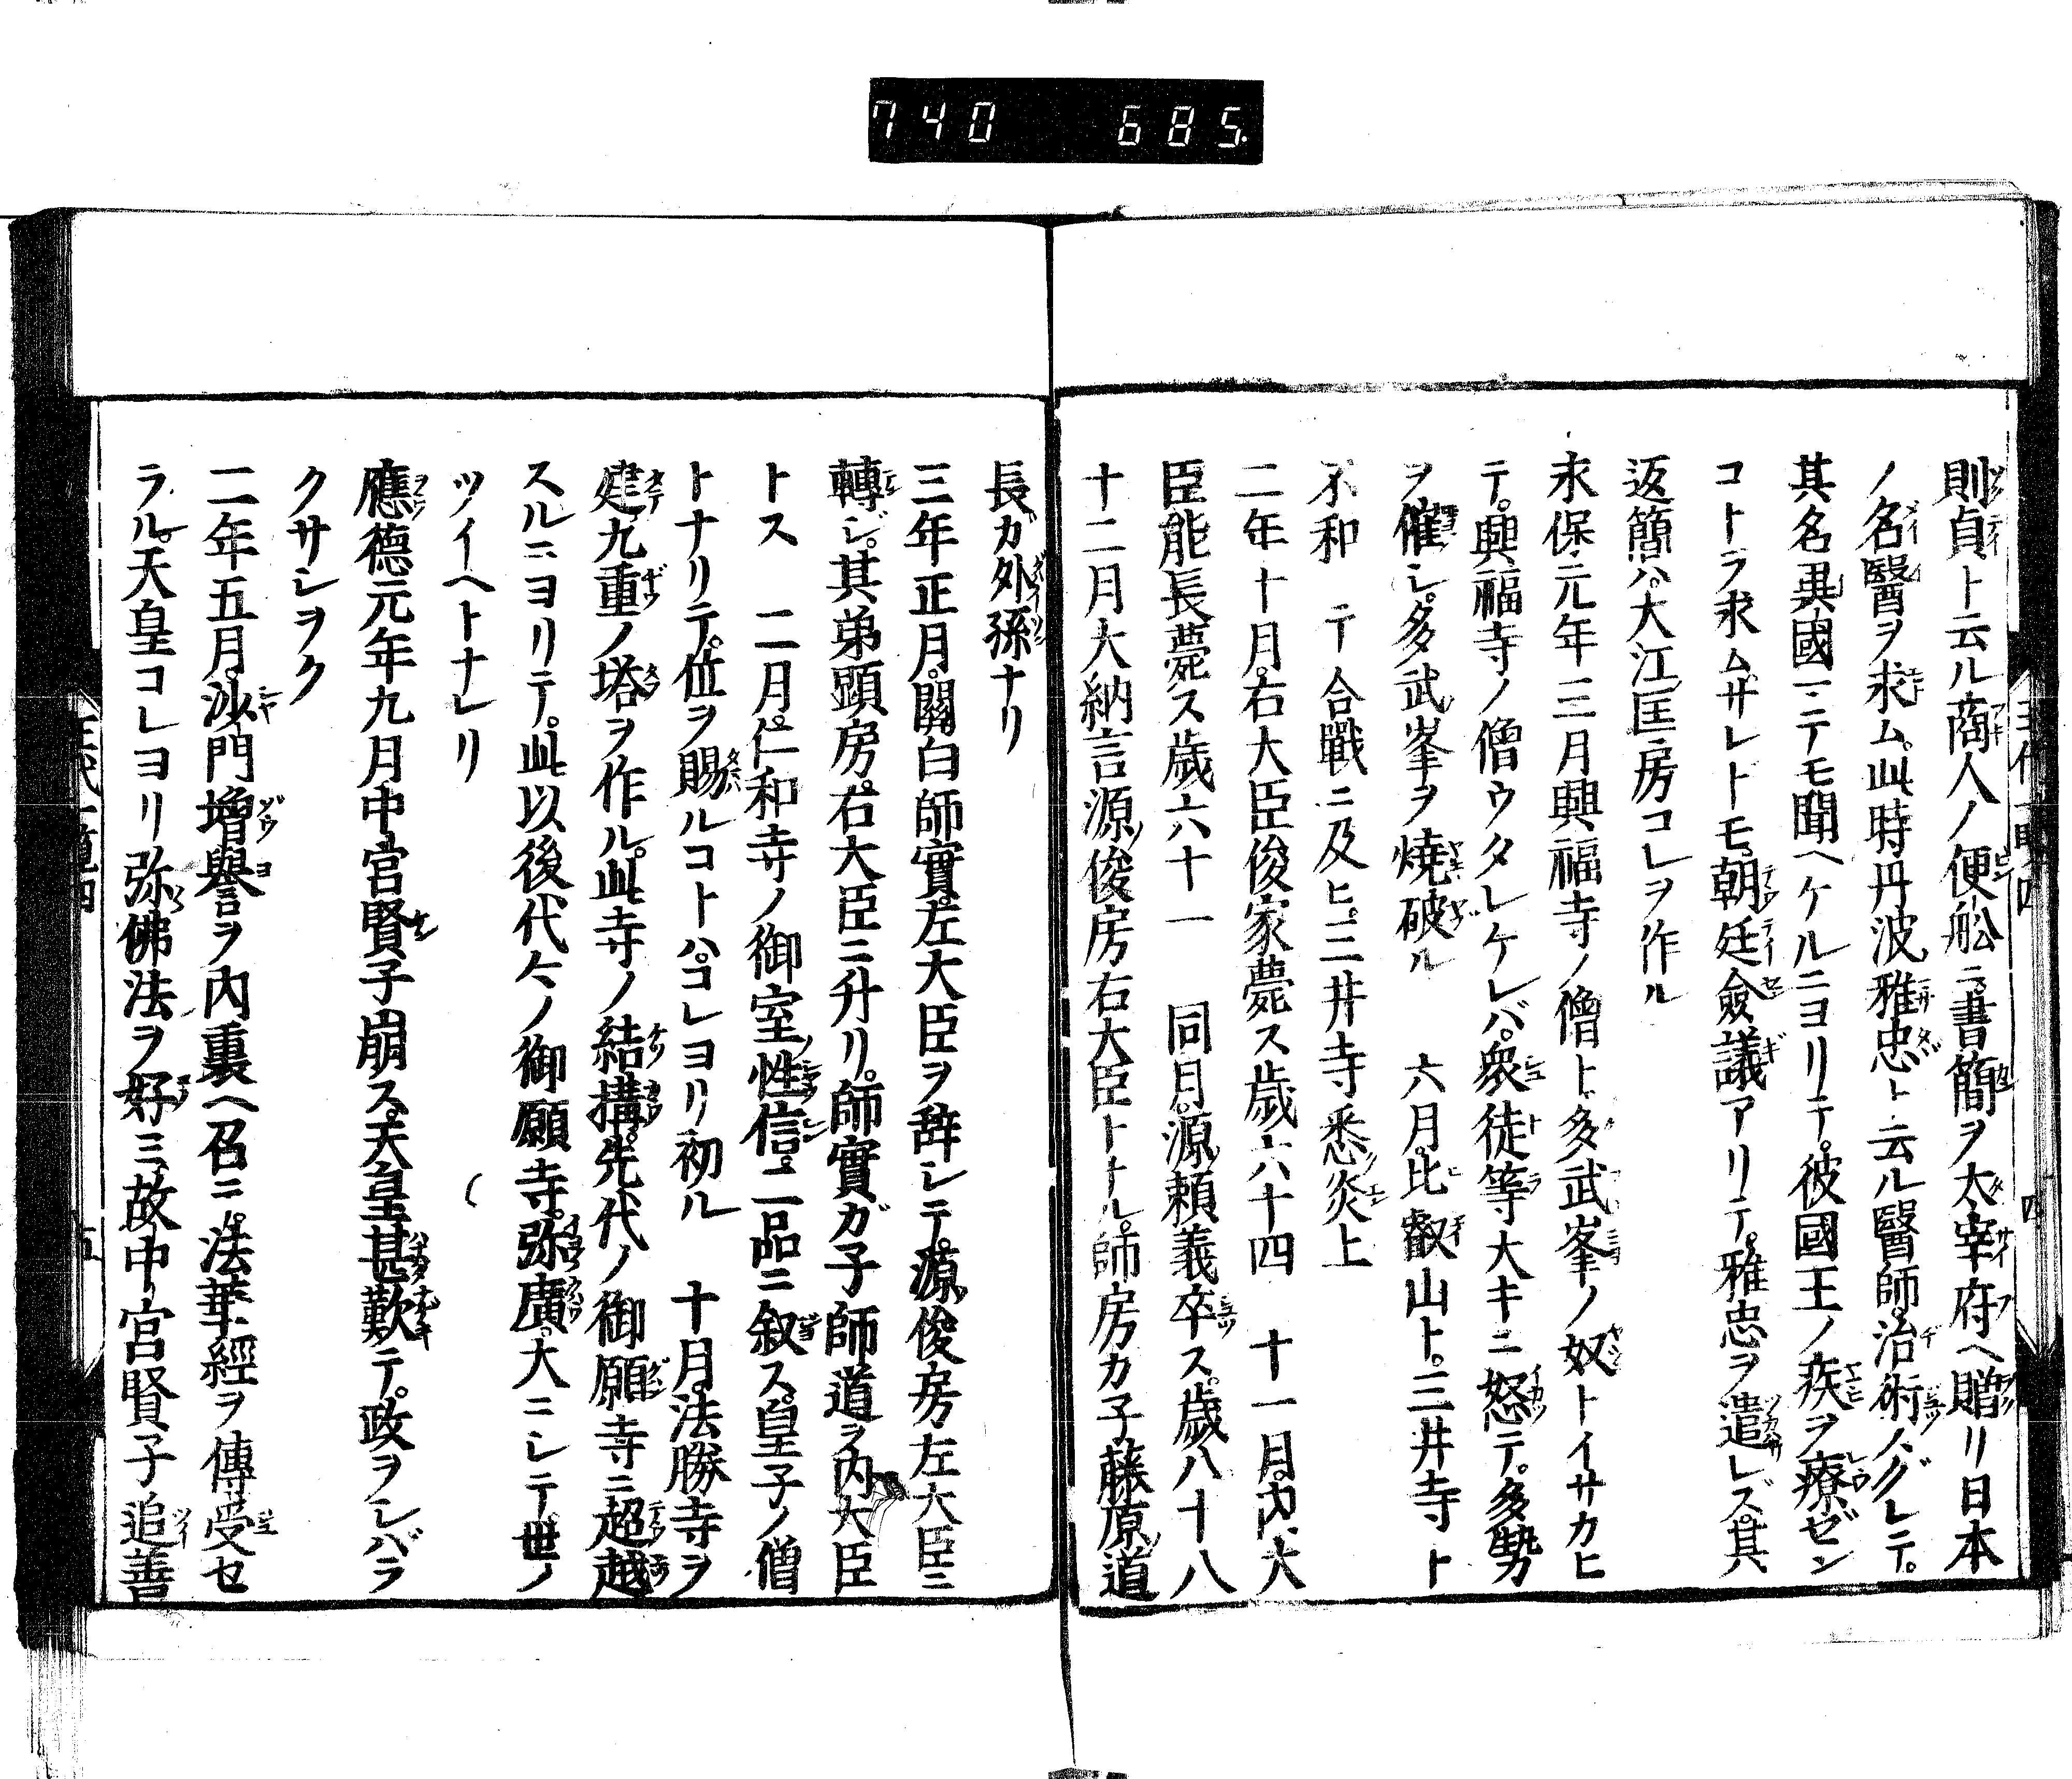 740 685
則貞ト云ル商人ノ便舩ニ書簡ヲ太宰府ヘ贈リ日本
ノ名醫ヲ求ム。此時丹波雅忠ト云ル醫師。治術ノグレテ。
其名異國ニテモ聞ヘケルニヨリテ。彼國王ノ疾ヲ療ゼン
コトヲ求ム。サレトモ。朝廷僉議アリテ。雅忠ヲ遣レズ。其
返簡ハ。大江匡房コレヲ作ル
永保元年三月興福寺ノ僧ト多武峯ノ奴トイサカヒ
テ。興福寺ノ僧ウタレケレバ。衆徒等大キニ怒テ。多勢
ヲ催シ。多武峯ヲ燒破ル 六月。比叡山ト。三井寺ト
不和 テ合戰ニ及ヒ。三井寺悉炎上
二年十月。右大臣俊家薨ス歳六十四 十一月。内大
臣能長薨ス歳六十一 同月。源頼義卒ス。歳八十八
十二月大納言源俊房右大臣トナル。師房カ子藤原道
長ガ外孫ナリ
三年正月。關白師實。左大臣ヲ辞シテ。源俊房左大臣ニ
轉ジ。其弟顕房。右大臣ニ升リ。師實ガ子師道ヲ内大臣
トス 二月。仁和寺ノ御室性信。二品ニ叙ス。皇子ノ僧
トナリテ。位ヲ賜ルコトハ。コレヨリ初ル 十月。法勝寺ヲ
建。九重ノ塔ヲ作ル。此寺ノ結搆。先代ノ御願寺ニ超越
スルニヨリテ。此以後代々ノ御願寺。弥廣。大ニシテ。世ノ
ツイヘトナレリ
應德元年九月中宮賢子崩ス。天皇甚歎テ。政ヲシバラ
クサシヲク
二年五月。沙門増譽ヲ内裏ヘ召ニ。法華經ヲ傳受セ
ラル。天皇コレヨリ弥佛法ヲ好ミ。故中宮賢子追善